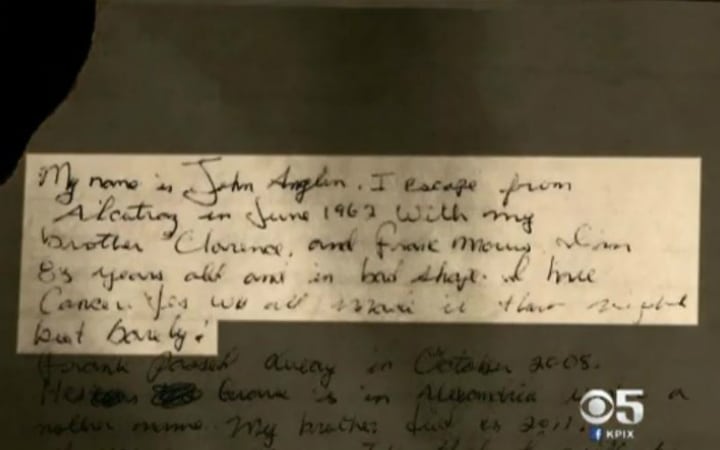 My name is John Anglin. I escape from
Alcatraz in June 1962 With my
brother Clarence, and Frank Morris. I'm
83 years old and in bad shape. I have
Cancer. Yes we all Made it that night
but barely!
Frank passed away in October 2008.
His grave is in Alexandria a
nother name. My brother died in 2011.
5
f KPIX